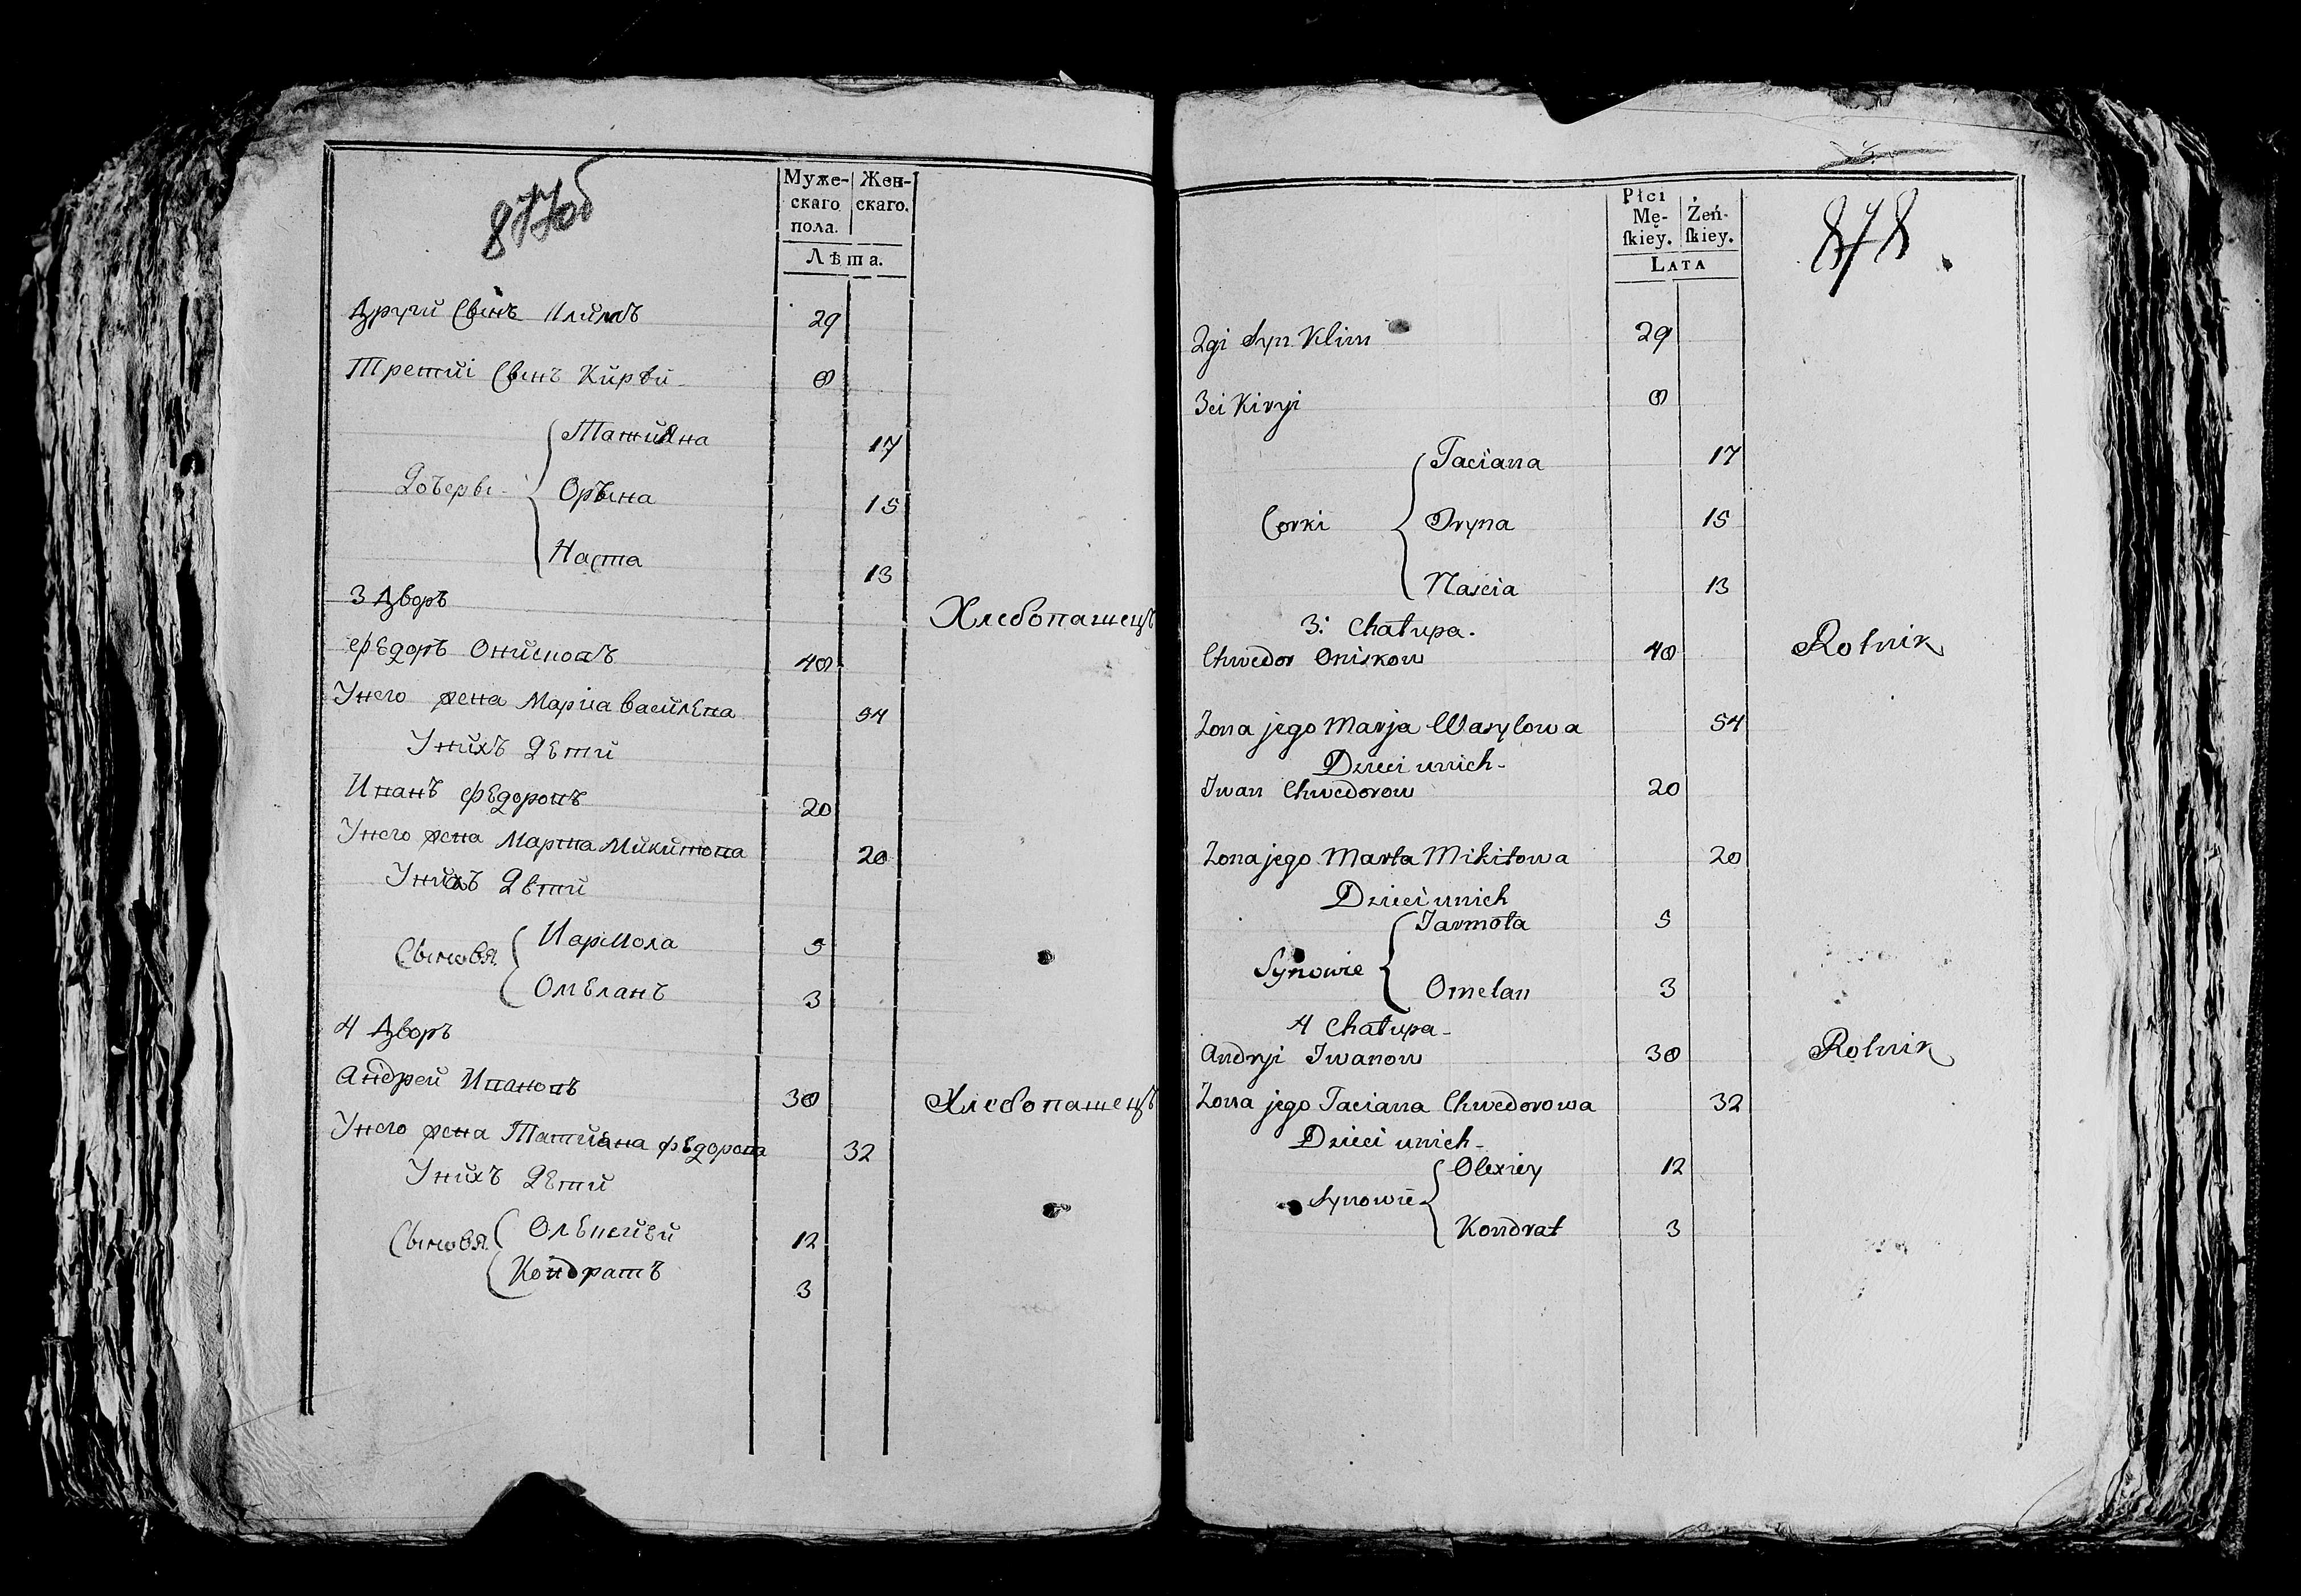 877об
Муже- Жен-
скаго скаго.
пола.
Лѣта.
Други Сынъ Климъ 29
Третиі Сынъ Кирѣй 8
Татияна 17
Дочерѣ Орына 15
Наста 13
3 Дворъ
Хлебопашецъ
Федоръ Онисковъ 40
Унего жена Мариа Василева 54
Унихъ Дети
Иванъ Федоровъ 20
Унего жена Марта Микитова 20
Унихъ Дети
Сыновя Иармола 5
Омеланъ 3
4 Дворъ
Андрей Ивановъ 30 Хлебопашецъ
Унего жена Татиана Федорова 32
Унихъ Дети
Сыновя Олексией 12
Кондратъ 3
Płci
Mę- Żeń-
ſkiey. ſkiey.
LATA
878
2gi Syn Klim 29
3ci Kiryi 8
Taciana 17
Corki Oryna 15
Nascia 13
3: Chałupa.
Chwedor Oniskow 40 Rolnik
Zona jego Marja Wasylowa 54
Dzieci unich-
Iwan Chwedorow 20
Zona jego Marta Mikitowa 20
Dzieci unich
Jarmoła 5
Synowie
Omelan 3
4 Chałupa-
Andryi Iwanow 30 Rolnik
Zona jego Taciana Chwedorowa 32
Dzieci unich-
Olexiey 12
Synowie
Kondrat 3